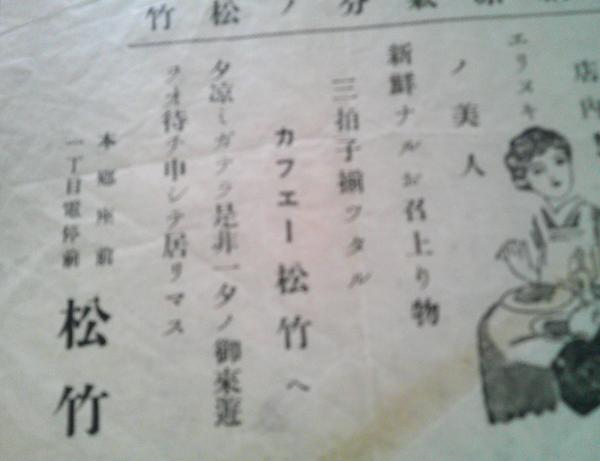 松竹
店内
エリスキ
ノ美人
新鮮ナルお召上り物
三拍子揃ツタル
カフェー松竹へ
夕凉ミガテラ是非一夕ノ御來遊
ヲオ待チ申シテ居リマス
本郷座前
一丁目電停前
松竹